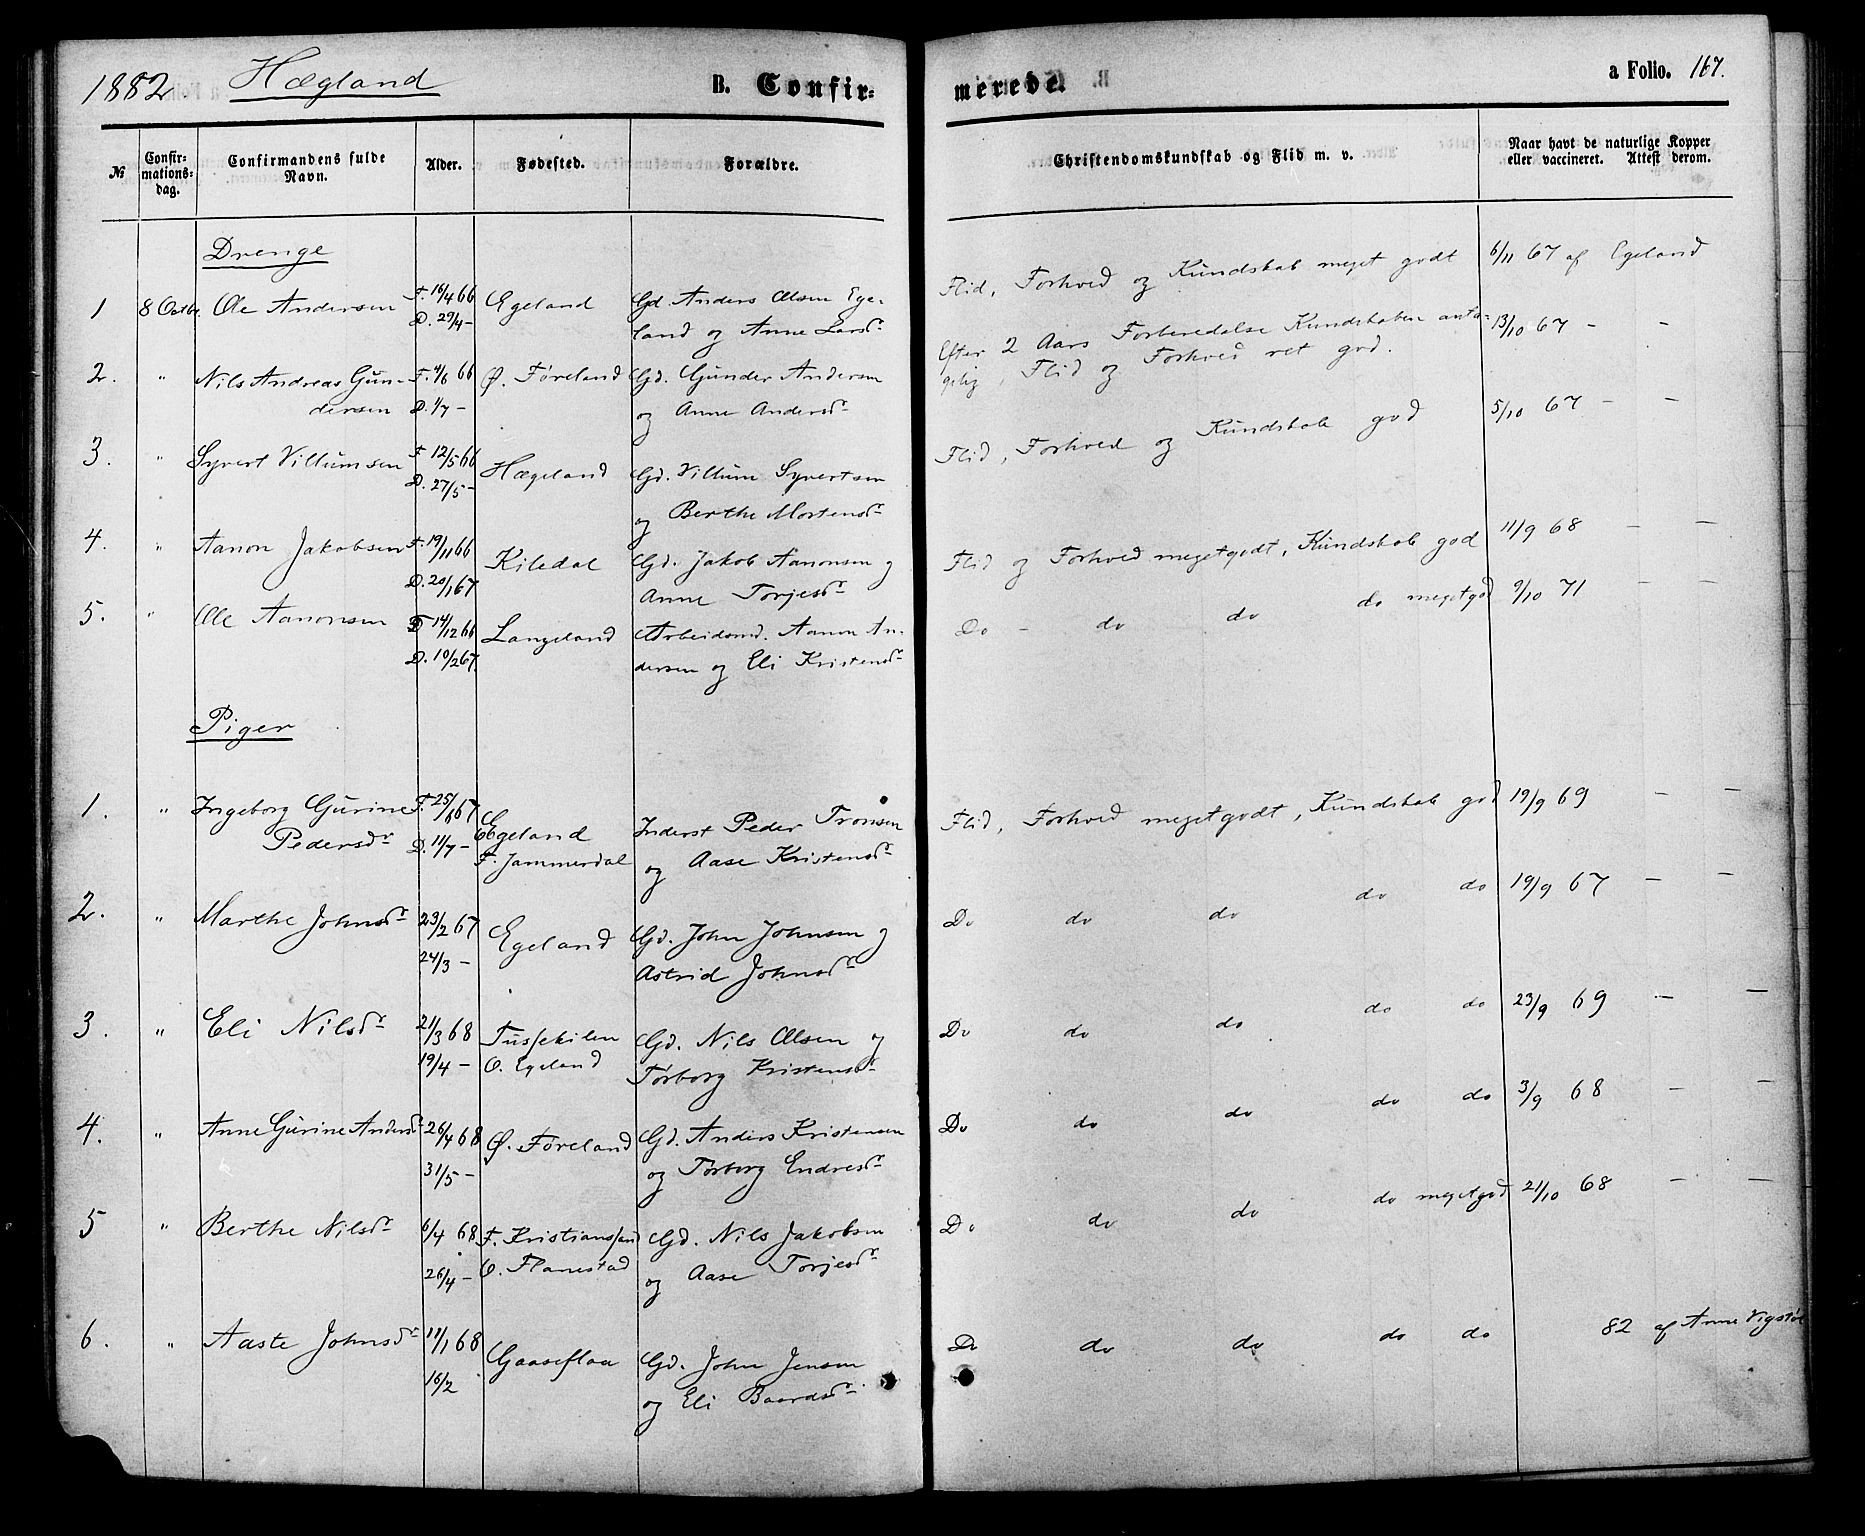 1882 Hægland B. Confirmerede. a Folio. 167.
№ Confirmationsdag. Confirmandens fulde Navn. Alder. Fødested. Forældre. Christendomskundskab og Flid m. v. Naar havt de naturlige Kopper eller vaccineret. Attest derom.
Drenge
1 8 Octbr. Ole Andersen F. 16/4 66 Egeland Gd. Anders Olsen Ege- Flid, Forhold og Kundskab meget godt 6/11 67 af Egeland
D. 29/4 – land og Anne Larsdr
2. " Nils Andreas Gun- F. 4/6 66 Ø. Føreland Gd. Gunder Andersen Efter 2 Aars Forberedelse Kundskaben anta- 13/10 67 – –
dersen D. 1/7 – og Anne Andersdr gelig, Flid og Forhold ret god.
3. " Syvert Villumsen F. 12/5 66 Hægeland Gd. Villum Syvertsen Flid, Forhold og Kundskab god 5/10 67 – –
D. 27/5 – og Berthe Mortensdr
4. " Aanon Jakobsen F. 19/11 66 Kiledal Gd. Jakob Aanonsen og Flid og Forhold megetgodt, Kundskab god 11/9 68 – –
D. 20/1 67 Anne Torjesdr
5. " Ole Aanonsen F 14/12 66 Langeland Arbeidsmd. Aanon An- Do – do do do megetgod 9/10 71 – –
D. 10/2 67 dersen og Eli Kristensdr
Piger
1. " Ingeborg Gurine F. 25/6 67 Egeland Inderst Peder Tronsen Flid, Forhold megetgodt, Kundskab god 19/9 69 – –
Pedersdr D. 11/7 – F. Jammerdal og Aase Kristensdr
2. " Marthe Johnsdr 23/2 67 Egeland Gd. John Johnsen og Do do do do do 19/9 67 – –
24/3 – Astrid Johnsdr
3. " Eli Nilsdr 21/3 68 Tussekilen Gd. Nils Olsen og Do do do do do 23/9 69 – –
19/4 – O. Egeland Torborg Kristensdr
4. " Anne Gurine Andersdr 26/4 68 Ø. Føreland Gd. Anders Kristensen Do do do do do 3/9 68 – –
31/5 – og Torborg Endresdr
5 " Berthe Nilsdr 6/4 68 F. Kristianssand Gd. Nils Jakobsen Do do do do megetgod 21/10 68 – –
26/4 – O. Flanestad og Aase Torjesdr
6. " Aaste Johnsdr 11/1 68 Gaaseflaa Gd. John Jensen Do do do do do 82 af Anne Vigstøl
16/2 og Eli Baardsdr